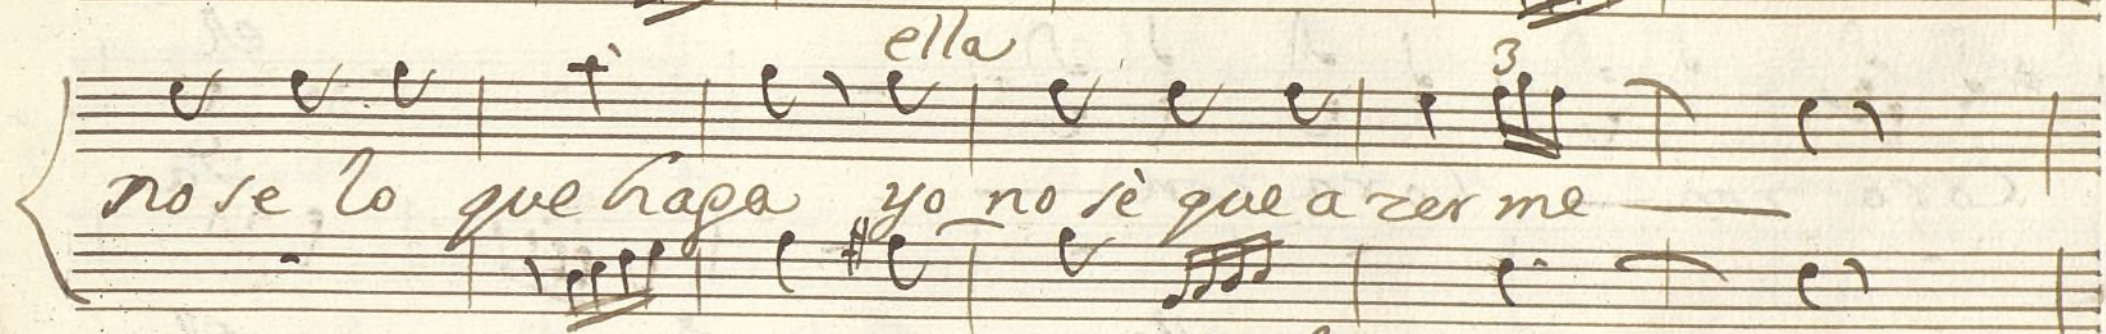 ella
3
no se lo que haga yo no sè que a zer me